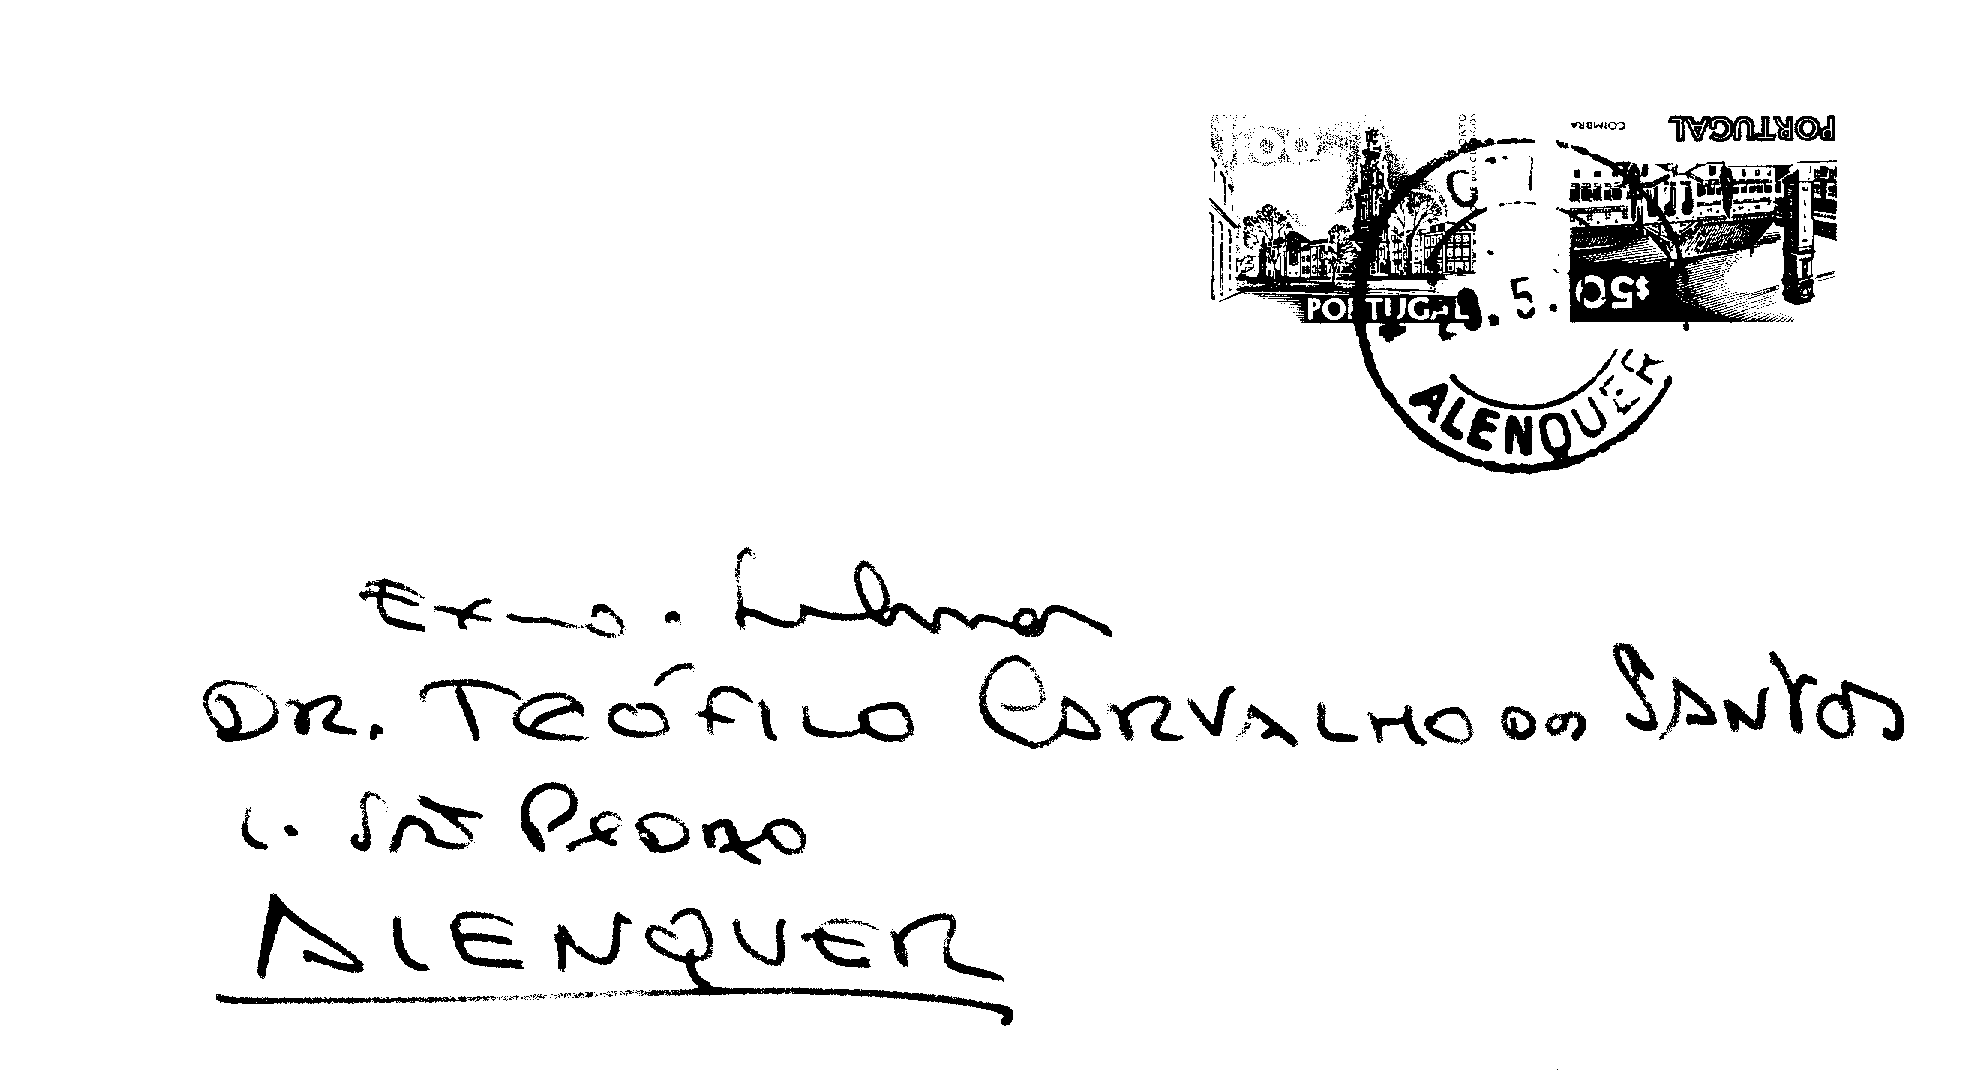 PORTUGAL
COIMBRA
1$00
PORTUGAL
$50
5.
ALENQUER
Exmo. Senhor
DR. TEÓFILO CARVALHO DOS SANTOS
L. SÃO PEDRO
ALENQUER